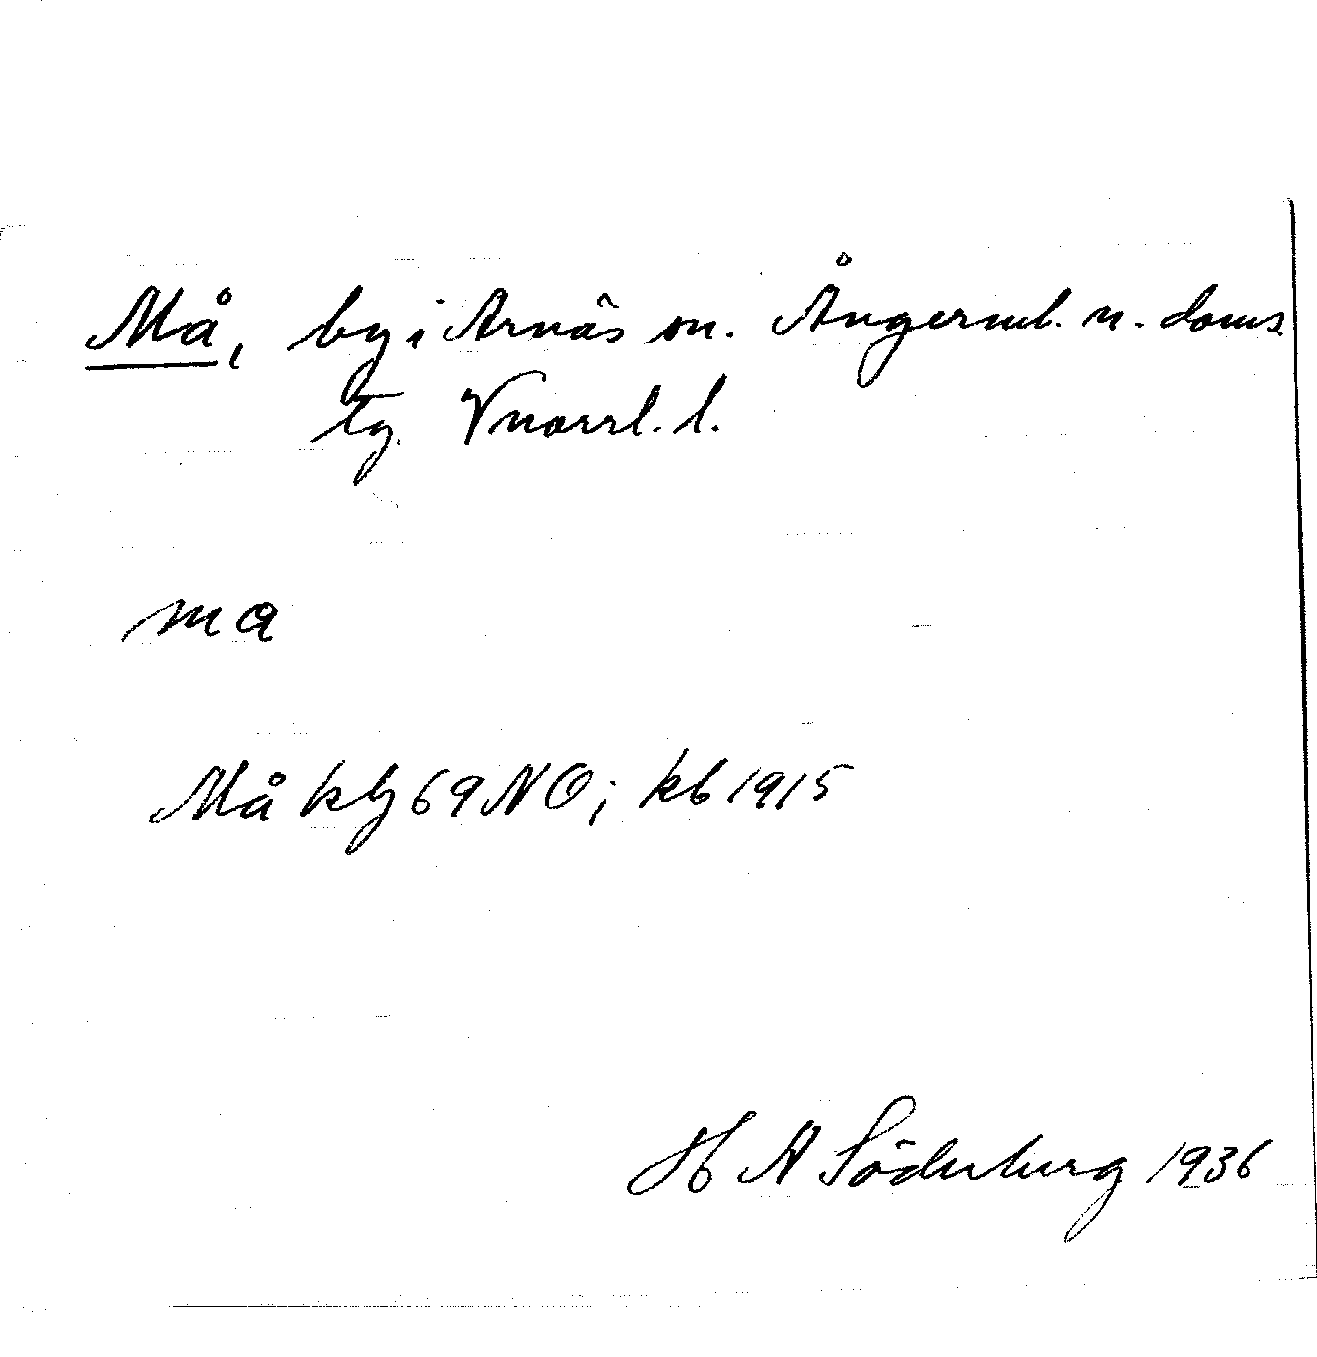 Må, by i Arnäs sn. Ångerml. n. doms.
tg. Vnorrl. l.
ma
Må kbj 69 NO; kb 1915
H A Söderberg 1936